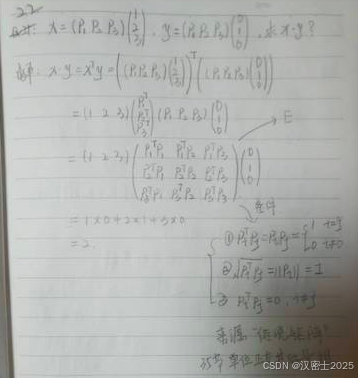 22
x = (P₁ P₂ P₃) (1 2 3), y = (P₁ P₂ P₃) (0 1 0), 求 x·y?
x·y = xᵀy = ((P₁ P₂ P₃) (1 2 3))ᵀ ((P₁ P₂ P₃) (0 1 0))
= (1 2 3) (P₁ᵀ P₂ᵀ P₃ᵀ) (P₁ P₂ P₃) (0 1 0)
→ E
= (1 2 3) (P₁ᵀP₁ P₁ᵀP₂ P₁ᵀP₃ P₂ᵀP₁ P₂ᵀP₂ P₂ᵀP₃ P₃ᵀP₁ P₃ᵀP₂ P₃ᵀP₃) (0 1 0)
= 1×0+2×1+3×0
= 2.
① PᵢᵀPⱼ = PᵢPⱼ = {1 i=j 0 i≠j
② √PᵢᵀPᵢ = ||Pᵢ|| = 1
③ PᵢᵀPⱼ = 0, i≠j
来源
CSDN @汉密士2025